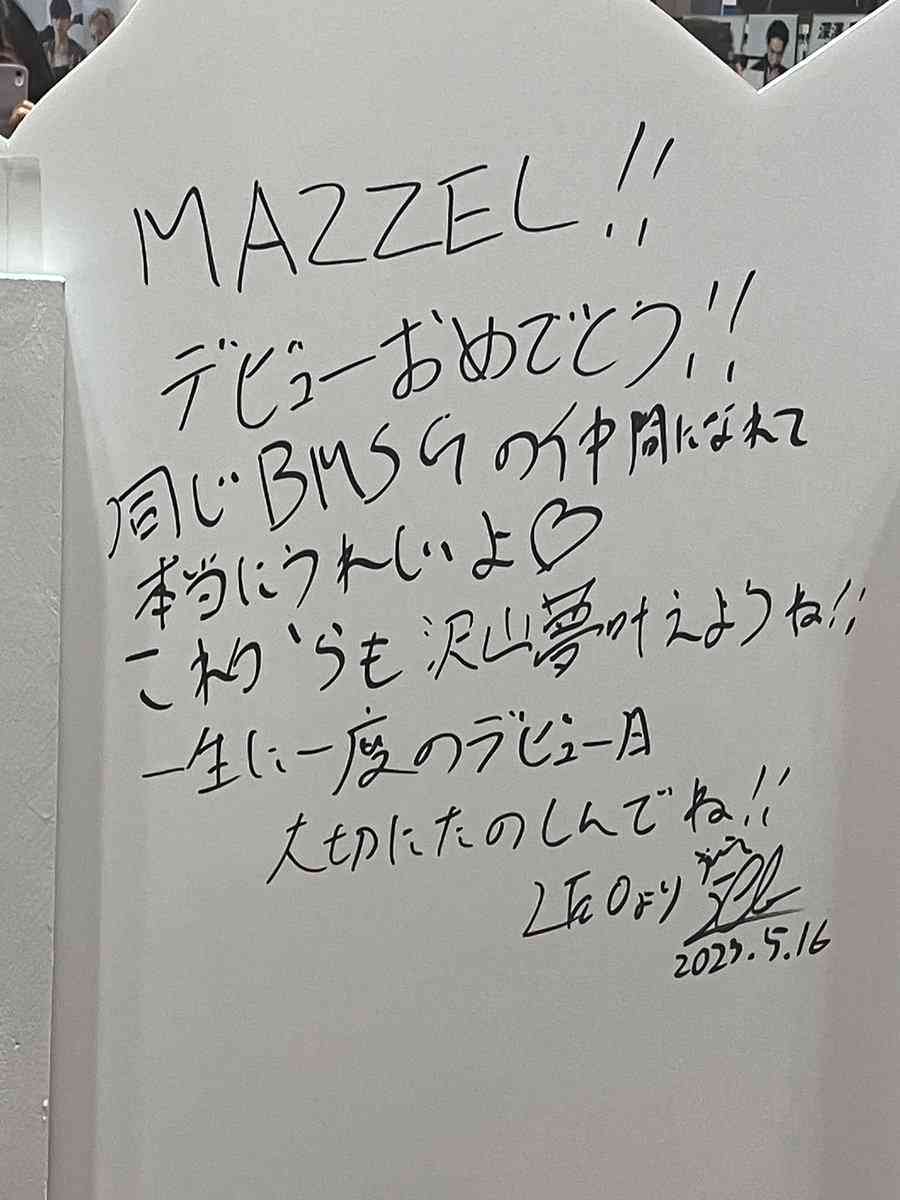 MAZZEL!!
デビューおめでとう!!
同じBMSGの仲間になれて
本当にうれしいよ♡
これからも沢山夢叶えようね!!
一生に一度のデビュー日
大切にたのしんでね!!
LEOより
2023.5.16